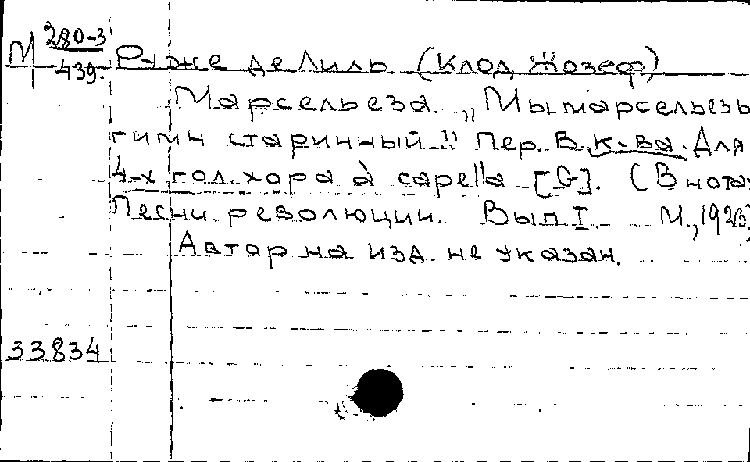 М 280-3
439. Руже де Лиль (Клод Жозеф)
Марсельеза. „Мы марсельезы
гимн старинный..." Пер. В. К-ва. Для
4-х гол. хора à capella [G]. (В нотах
Песни революции. Вып. I. М., 1923)
Автор на изд. не указан.
33834